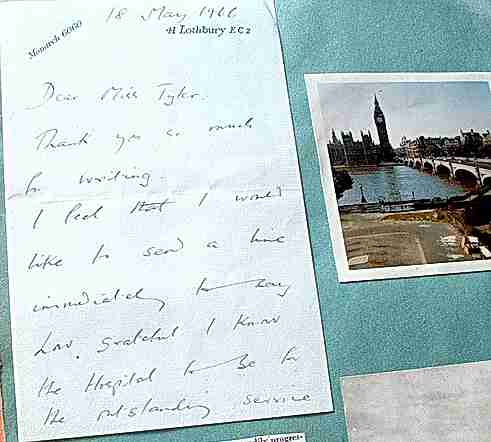 18 May 1966
Monarch 6060
41 Lothbury EC2
Dear Miss Tyler.
Thank you so much
for writing.
I feel that I would
like to send a line
immediately to say
how grateful I know
the Hospital to be for
the outstanding service
progres-